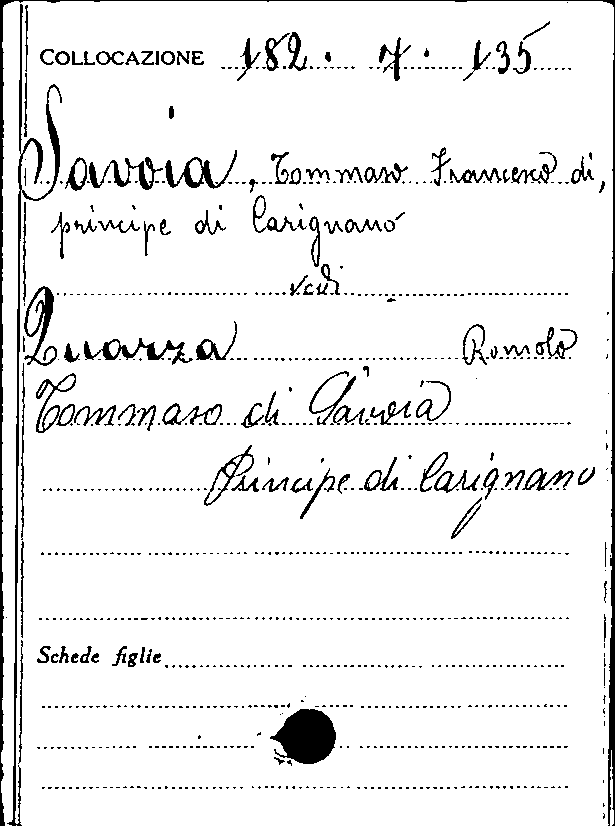 COLLOCAZIONE 182. 7. 135
Savoia, Tommaso Francesco di,
principe di Carignano
vedi
Quazza Romolo
Tommaso di Savoia
Principe di Carignano
Schede figlie